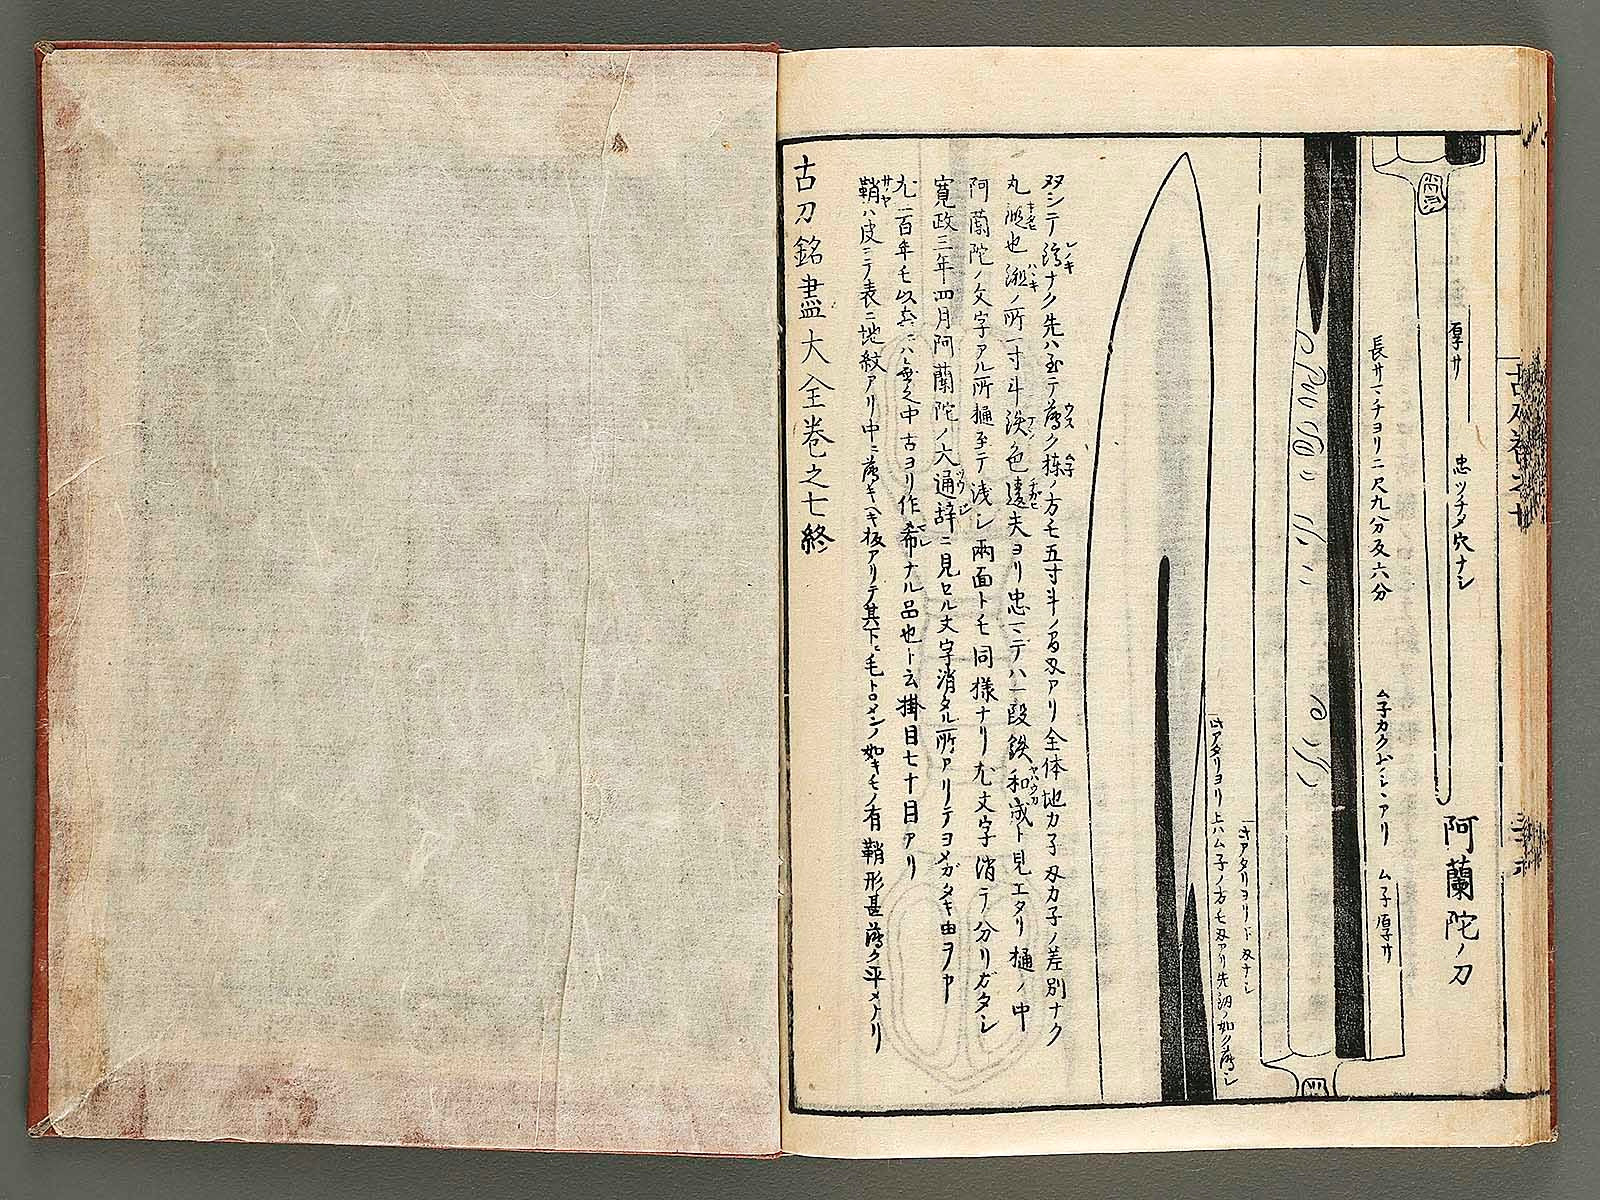 阿蘭陀ノ刀
厚サ
忠ツチタ穴ナシ
長サマチヨリ二尺九分反六分
ム子厚サ
此アタリヨリ下刄ナシ
此アタリヨリ上ハム子ノ方モ刄アリ先ノ如ク薄シ
シテ鎬ナク先ハ至テ薄ク棟ノ方モ五寸斗ノ間刄アリ全体地カ子刄カ子ノ差別ナク
丸也ノ所一寸斗色夫ヨリ忠マテハ一段鉄和成ト見エタリ樋ノ中
阿蘭陀ノ文字アル所樋至テ浅シ兩面トモ同様ナリ尤文字消テ分リガタシ
寛政三年四月阿蘭陀ノ大通辞ニ見セル文字消タル所アリテヨメガタキ由ヲヤ
尤二百年モ以ハ中古ヨリ作希ナル品也ト云掛目七十目アリ
鞘ハ皮ニテ表ニ地紋アリ中ニ薄キヘキ板アリテ其下ニ毛トロメンノ如キモノ有鞘形甚薄ク平メナリ
古刀銘盡大全巻之七終